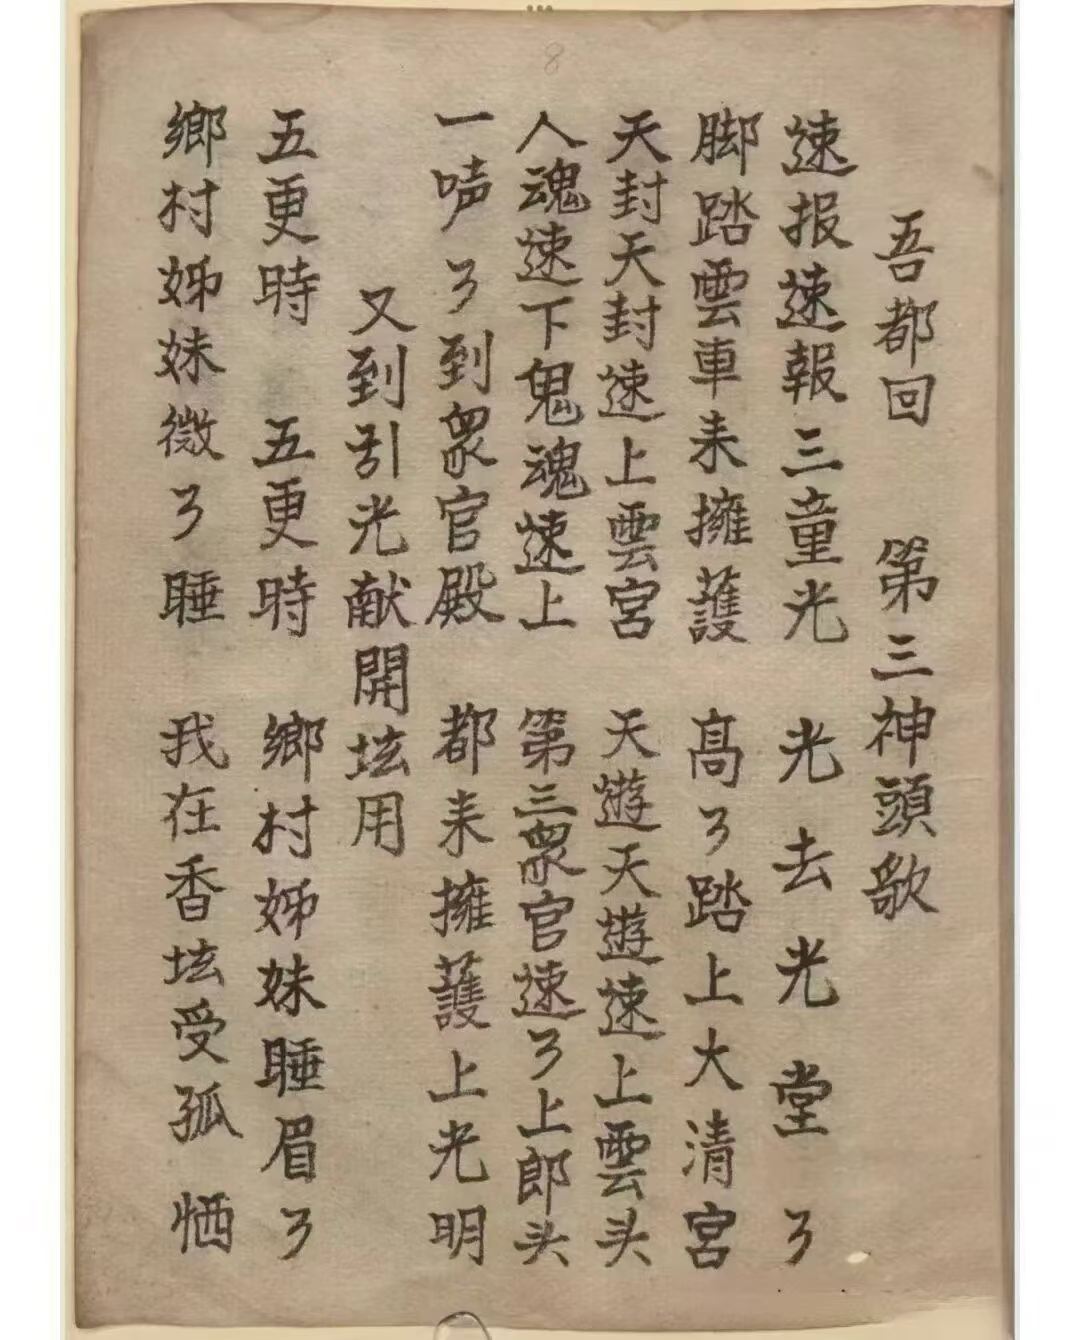 8
吾都回　第三神頭歌
速报速報三童光　光去光堂了
脚踏雲車耒擁護　高了踏上大清宮
天封天封速上雲宮　天遊天遊速上雲头
人魂速下鬼魂速上　第三衆官速了上郎头
一唥了到衆官殿　都耒擁護上光明
又到引光献開坛用
五更時　五更時　鄉村姊妹睡眉了
鄉村姊妹微了睡　我在香坛受孤恓